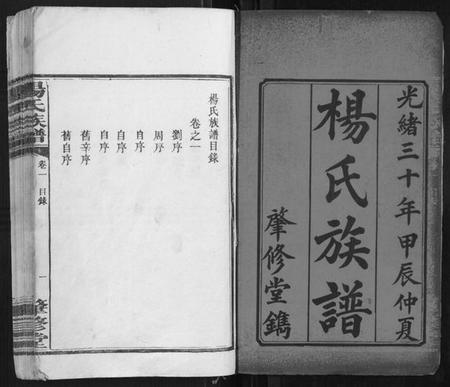 光緒三十年甲辰仲夏
楊氏族譜
肇修堂鐫
楊氏族譜目錄
卷之一
劉序
周序
自序
自序
自序
舊辛序
舊自序
楊氏族譜
卷一 目錄
一
肇修堂